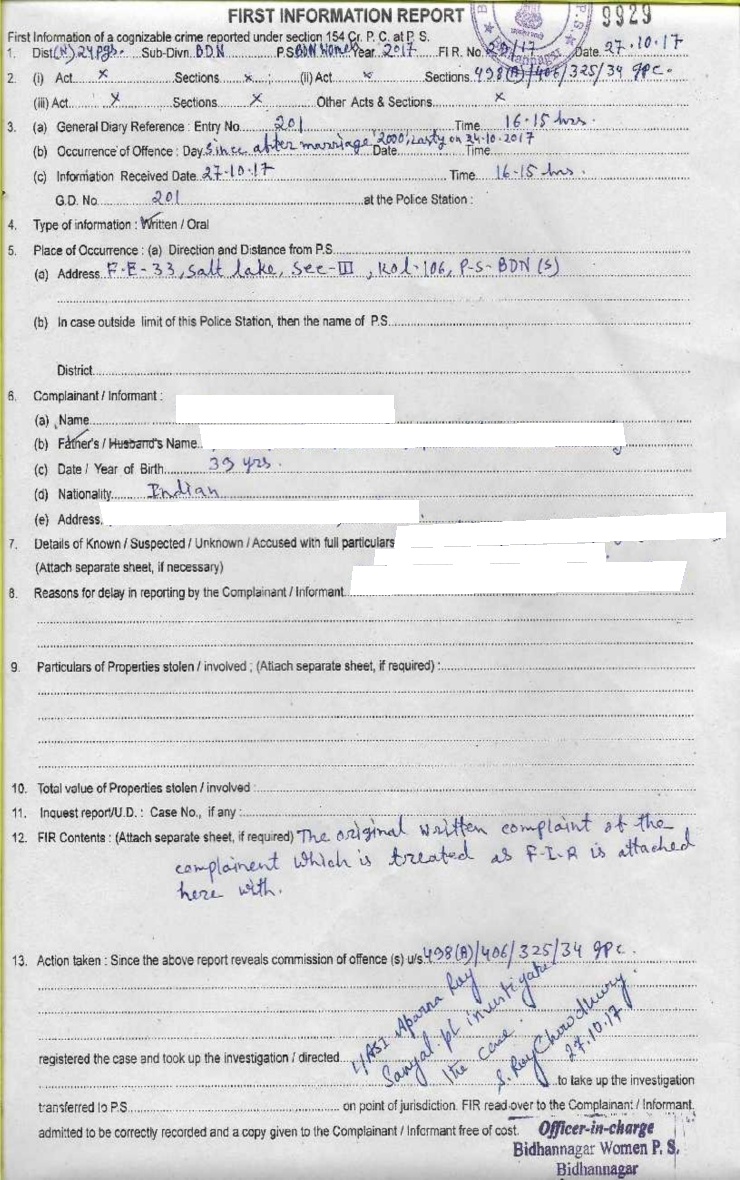 FIRST INFORMATION REPORT
9929
B P.S. Bidhannagar
First Information of a cognizable crime reported under section 154 Cr. P. C. at P. S.
1. Dist (N) 24 pgs. Sub-Divn. BDN P.S. BDN Women Year 2017 FIR. No. /17 Date. 27.10.17
2. (i) Act x Sections x (ii) Act x Sections 498(A)/406/325/34 IPC.
(iii) Act x Sections x Other Acts & Sections x
3. (a) General Diary Reference : Entry No 201 Time 16.15 hrs.
(b) Occurrence of Offence : Day Since after marriage '2000', lastly on 24.10.2017 Date Time
(c) Information Received Date 27.10.17 Time 16-15 hrs.
G.D. No. 201 at the Police Station :
4. Type of information : Written / Oral
5. Place of Occurrence : (a) Direction and Distance from P.S.
(a) Address. F-E-33, Salt lake, Sec-III, Kol-106, P-S-BDN (S)
(b) In case outside limit of this Police Station, then the name of P.S.
District
6. Complainant / Informant :
(a) Name
(b) Father's / Husband's Name
(c) Date / Year of Birth 39 yrs.
(d) Nationality Indian
(e) Address.
7. Details of Known / Suspected / Unknown / Accused with full particulars
(Attach separate sheet, if necessary)
8. Reasons for delay in reporting by the Complainant / Informant
9. Particulars of Properties stolen / involved ; (Attach separate sheet, if required) :
10. Total value of Properties stolen / involved :
11. Inquest report/U.D. : Case No., if any :
12. FIR Contents : (Attach separate sheet, if required) The original written complaint of the
complainent which is treated as F-I-R is attached
here with.
13. Action taken : Since the above report reveals commission of offence (s) u/s 498(A)/406/325/34 IPC.
ASI Aparna Ray
Sanyal pl investigate
the case.
S. Ray Chowdhury
27.10.17
registered the case and took up the investigation / directed
to take up the investigation
transferred to P.S. on point of jurisdiction. FIR read over to the Complainant / Informant,
admitted to be correctly recorded and a copy given to the Complainant / Informant free of cost.
Officer-in-charge
Bidhannagar Women P. S.
Bidhannagar